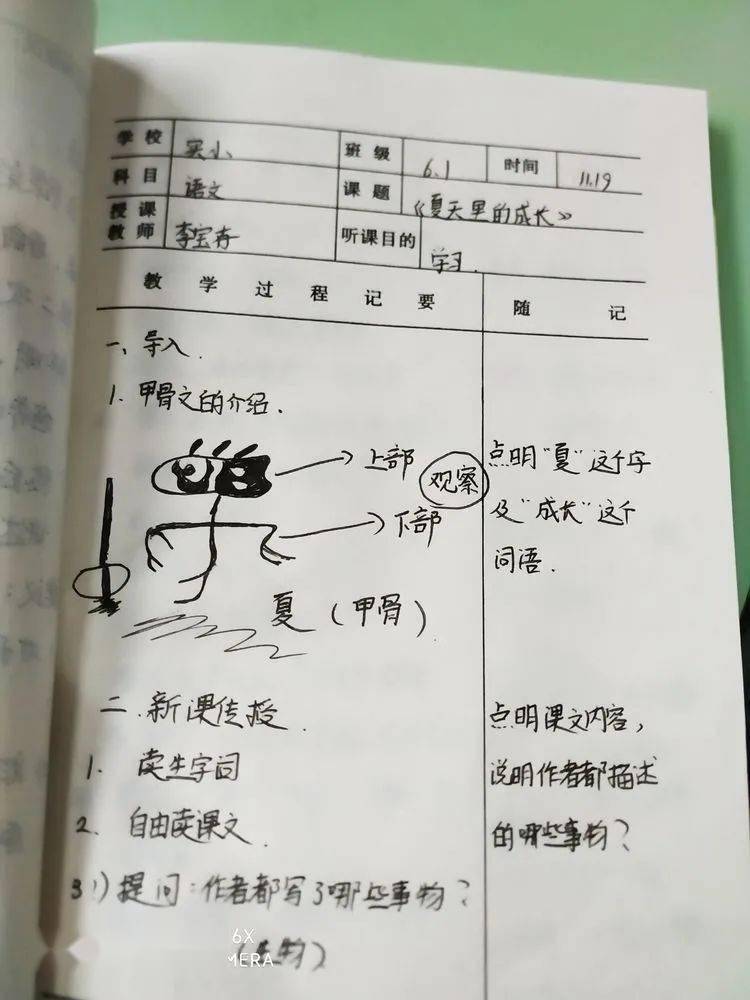 学校 实小 班级 6.1 时间 11.19
科目 语文 课题 《夏天里的成长》
授课教师 李宝存 听课目的 学习.
教学过程记要 随记
一、导入.
1. 甲骨文的介绍.
上部 观察
下部
夏（甲骨）
点明"夏"这个字
及"成长"这个
词语.
二.新课传授.
1. 读生字词
2. 自由读课文.
3 1）提问：作者都写了哪些事物？
点明课文内容，
说明作者都描述
的哪些事物？
6X
MERA